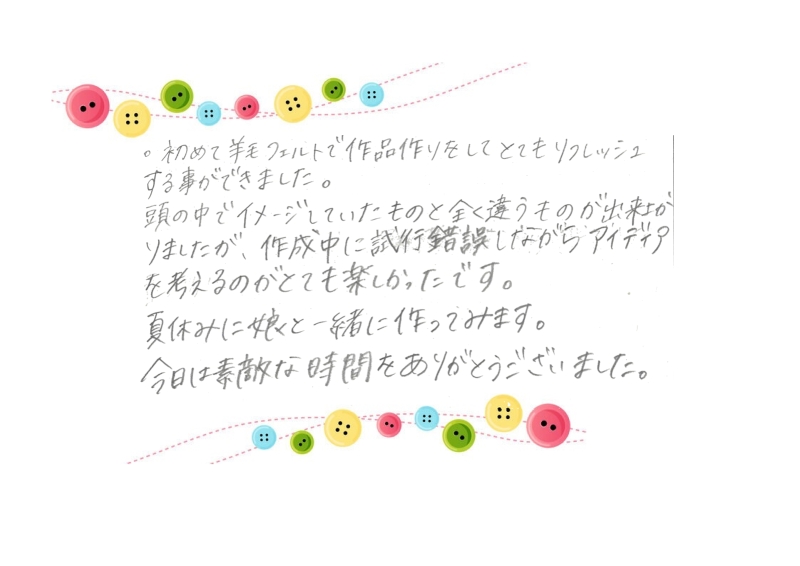 。初めて羊毛フェルトで作品作りをしてとてもリフレッシュ
する事ができました。
頭の中でイメージしていたものと全く違うものが出来上が
りましたが、作成中に試行錯誤しながらアイディア
を考えるのがとても楽しかったです。
夏休みに娘と一緒に作ってみます。
今日は素敵な時間をありがとうございました。